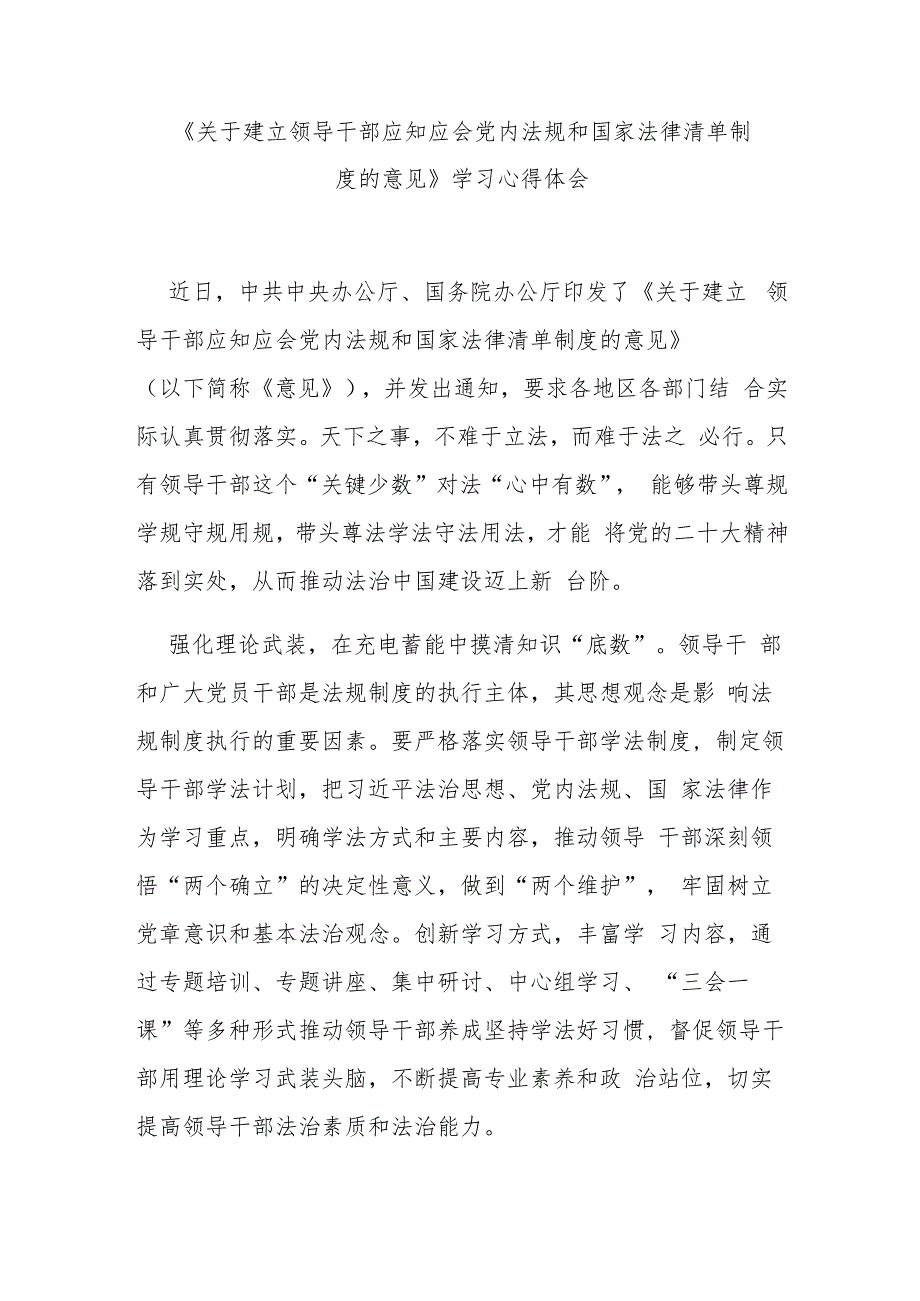 《关于建立领导干部应知应会党内法规和国家法律清单制
度的意见》学习心得体会
近日，中共中央办公厅、国务院办公厅印发了《关于建立 领
导干部应知应会党内法规和国家法律清单制度的意见》
（以下简称《意见》），并发出通知，要求各地区各部门结 合实
际认真贯彻落实。天下之事，不难于立法，而难于法之 必行。只
有领导干部这个“关键少数”对法“心中有数”， 能够带头尊规
学规守规用规，带头尊法学法守法用法，才能 将党的二十大精神
落到实处，从而推动法治中国建设迈上新 台阶。
强化理论武装，在充电蓄能中摸清知识“底数”。领导干 部
和广大党员干部是法规制度的执行主体，其思想观念是影 响法
规制度执行的重要因素。要严格落实领导干部学法制度，制定领
导干部学法计划，把习近平法治思想、党内法规、国 家法律作
为学习重点，明确学法方式和主要内容，推动领导 干部深刻领
悟“两个确立”的决定性意义，做到“两个维护”， 牢固树立
党章意识和基本法治观念。创新学习方式，丰富学 习内容，通
过专题培训、专题讲座、集中研讨、中心组学习、 “三会一
课”等多种形式推动领导干部养成坚持学法好习惯，督促领导干
部用理论学习武装头脑，不断提高专业素养和政 治站位，切实
提高领导干部法治素质和法治能力。